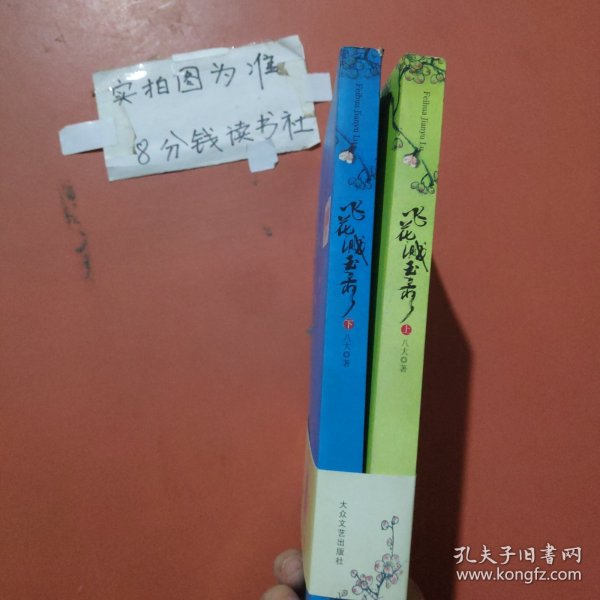 实拍图为准
8分钱读书社
Feihua Jianyu Lu
飞花溅玉录
下
八大◎著
Feihua Jianyu Lu
飞花溅玉录
上
八大◎著
大众文艺出版社
孔夫子旧书网
www.kongfz.com